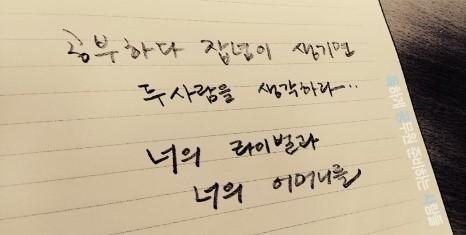 공부하다 잡념이 생기면
두 사람을 생각하라..
너의 라이벌과
너의 어머니를
독하게 공무원 준비하는 사람들